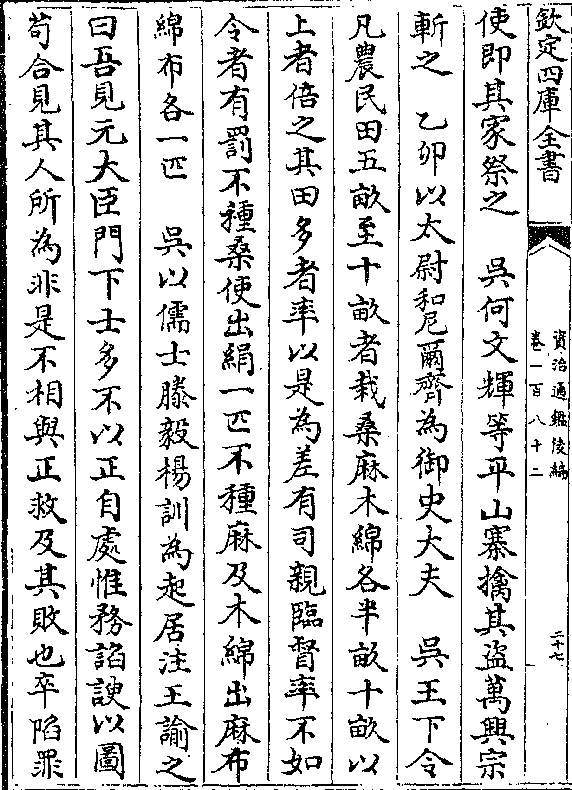 欽定四庫全書
資治通鑑後編
卷一百八十二
二十七
使即其家祭之　吳何文輝等平山寨擒其盜萬興宗
斬之　乙卯以太尉和尼爾齊為御史大夫　吳王下令
凡農民田五畝至十畝者栽桑麻木綿各半畝十畝以
上者倍之其田多者率以是為差有司親臨督率不如
令者有罰不種桑使出絹一匹不種麻及木綿出麻布
綿布各一匹　吳以儒士滕毅楊訓為起居注王諭之
曰吾見元大臣門下士多不以正自處惟務諂諛以圖
苟合見其人所為非是不相與正救及其敗也卒陷罪